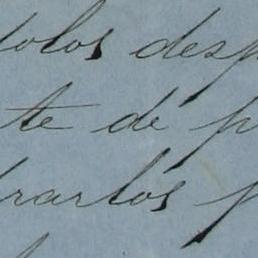 dolos desp
te de p
rarlos p